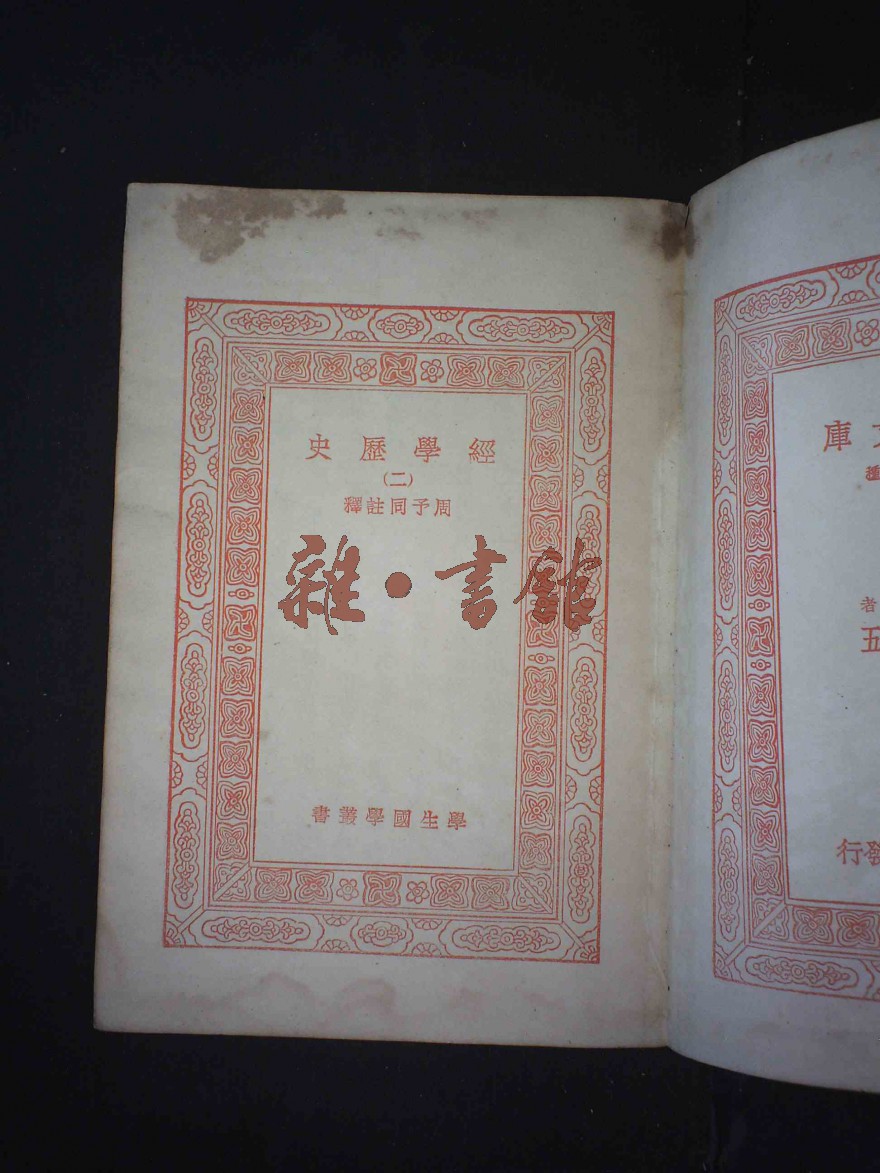 經學歷史
（二）
周予同註釋
雜·書館
學生國學叢書
文庫
種
者
五
發行